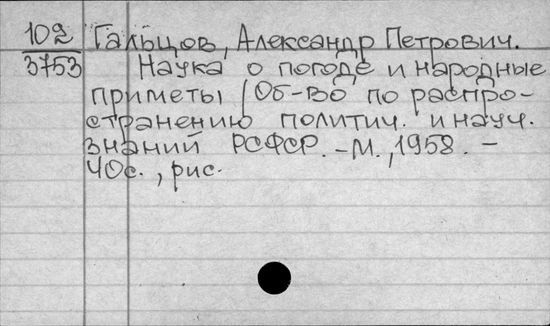 102 Гальцов, Александр Петрович.
3753 Наука о погоде и народные
приметы / Об-во по распро-
странению политич. и науч.
знаний РСФСР. - М., 1958. -
40с., рис.